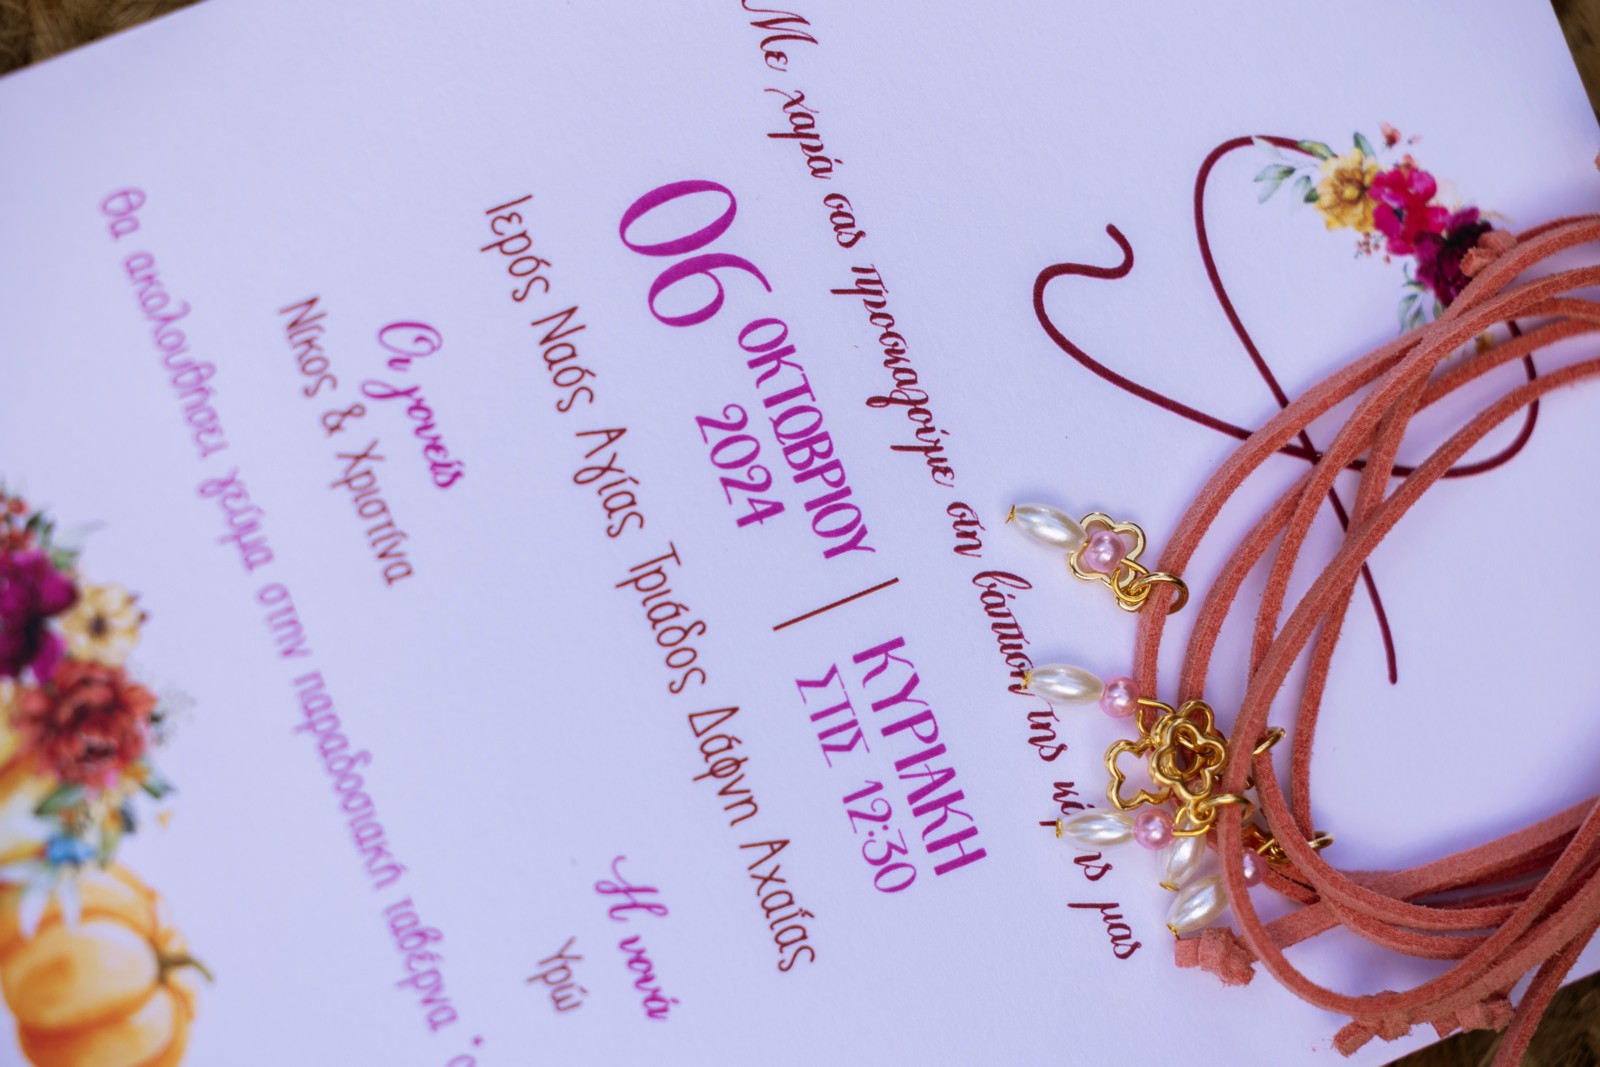 Με χαρά σας προσκαλούμε στη βάπτιση της μας
06 ΟΚΤΩΒΡΙΟΥ 2024 | ΚΥΡΙΑΚΗ ΣΤΙΣ 12:30
Ιερός Ναός Αγίας Τριάδος Δάφνη Αχαΐας
Οι γονείς
Νίκος & Χριστίνα
Η νονά
Υρώ
Θα ακολουθήσει γεύμα στην παραδοσιακή ταβέρνα